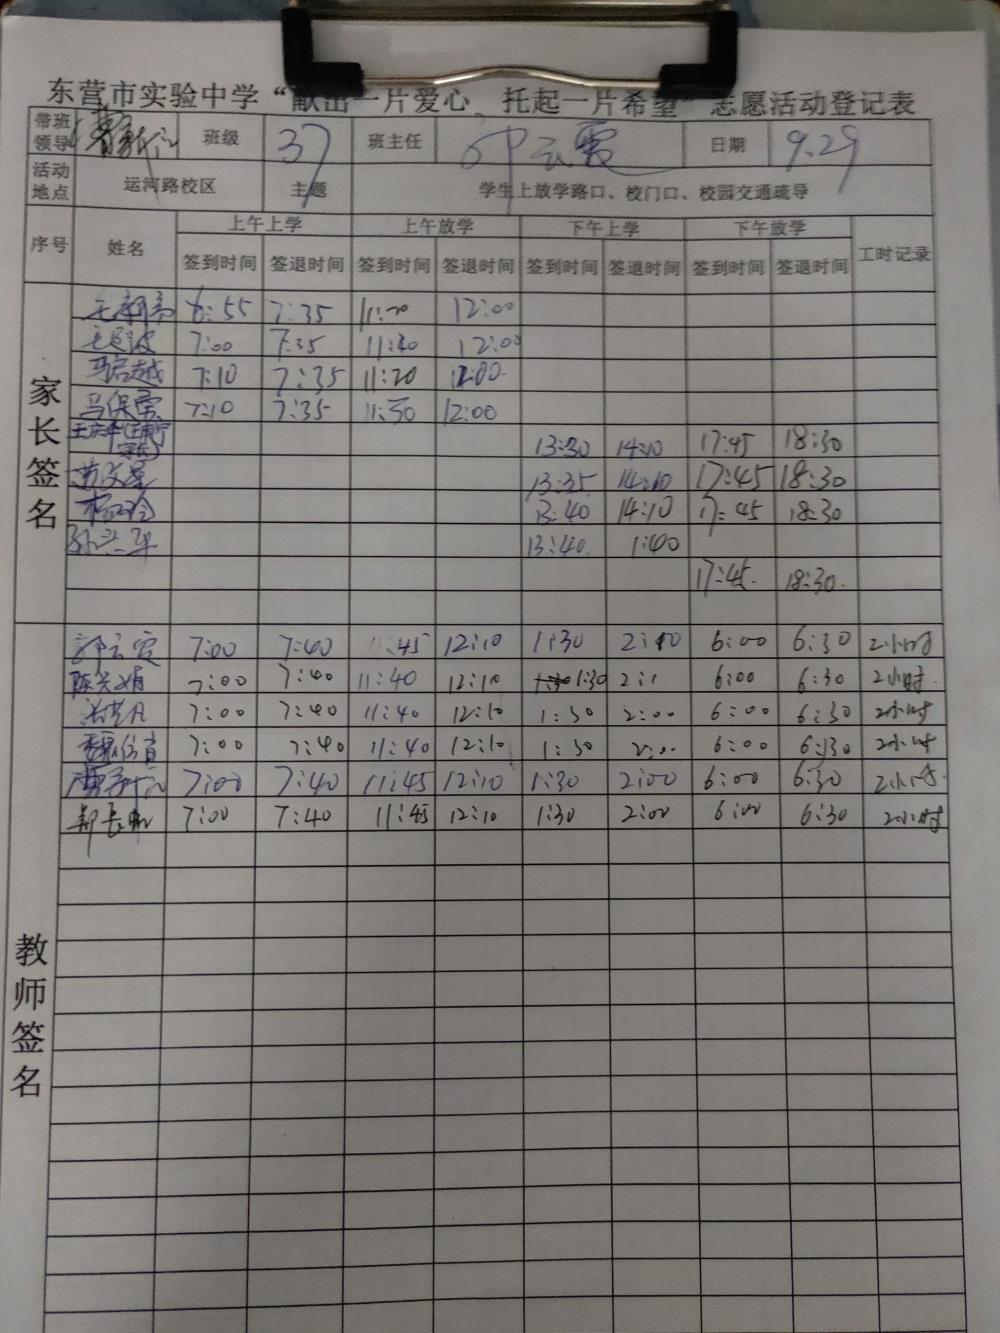 东营市实验中学“献出一片爱心 托起一片希望”志愿活动登记表
带班领导 班级 37 班主任 日期 9.29
活动地点 运河路校区 主题 学生上放学路口、校门口、校园交通疏导
序号 姓名 上午上学 上午放学 下午上学 下午放学 工时记录
签到时间 签退时间 签到时间 签退时间 签到时间 签退时间 签到时间 签退时间
家长签名
6:55 7:35 11:20 12:00
7:00 7:35 11:20 12:00
7:10 7:35 11:20 12:00
马保雷 7:10 7:35 11:30 12:00
13:30 14:10 17:45 18:30
13:35 14:10 17:45 18:30
13:40 14:10 17:45 18:30
孙兴华 13:40 1:40
17:45 18:30
教师签名
7:00 7:40 11:45 12:10 1:30 2:10 6:00 6:30 2小时
7:00 7:40 11:40 12:10 1:30 6:00 6:30 2小时
7:00 7:40 11:40 12:10 1:30 2:00 6:00 6:30 2小时
7:00 7:40 11:40 12:10 1:30 2:00 6:00 6:30 2小时
7:00 7:40 11:45 12:10 1:30 2:00 6:00 6:30 2小时
7:00 7:40 11:45 12:10 1:30 2:00 6:00 6:30 2小时